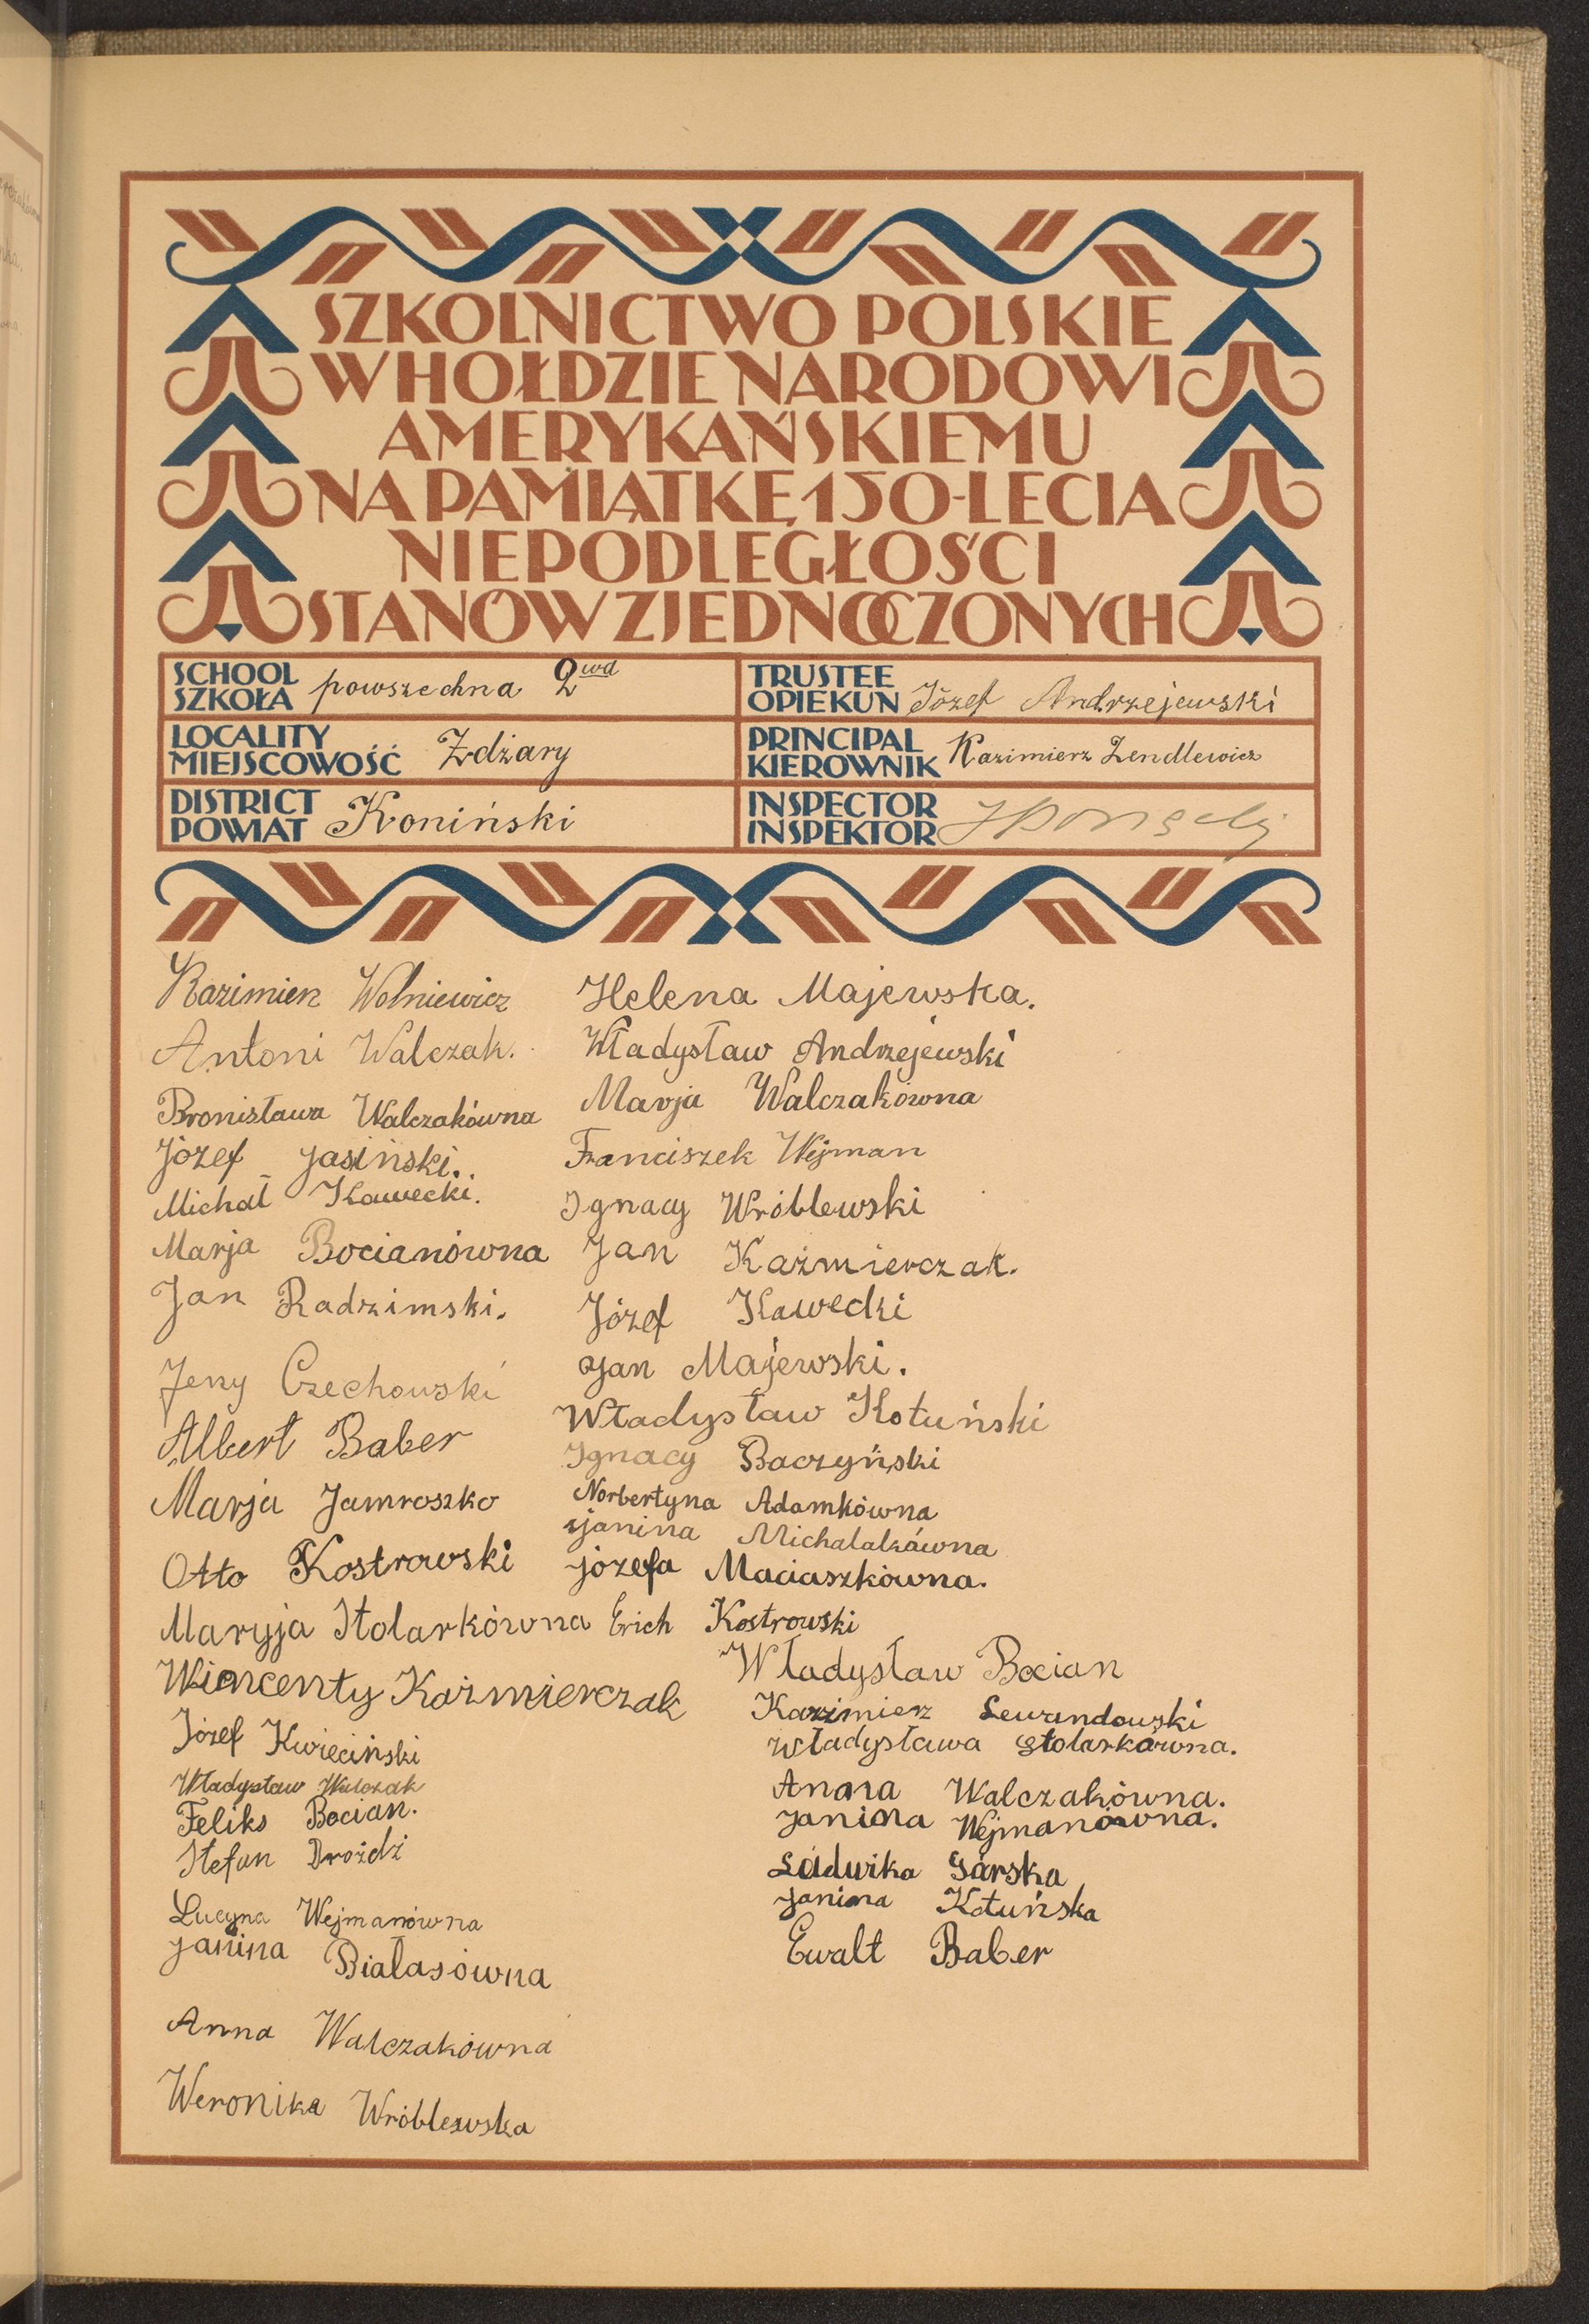 SZKOLNICTWO POLSKIE
W HOŁDZIE NARODOWI
AMERYKAŃSKIEMU
NA PAMIĄTKĘ 150-LECIA
NIEPODLEGŁOŚCI
STANÓW ZJEDNOCZONYCH
SCHOOL
SZKOŁA powszechna 2 wd
TRUSTEE
OPIEKUN Józef Andrzejewski
LOCALITY
MIEJSCOWOŚĆ Zdżary
PRINCIPAL
KIEROWNIK Kazimierz Zendlewicz
DISTRICT
POWIAT Koniński
INSPECTOR
INSPEKTOR
Kazimierz Wolniewicz
Antoni Walczak.
Bronisława Walczakówna
Józef Jasiński.
Michał Kawecki.
Marja Bocianówna
Jan Radzimski.
Jerzy Czechowski
Albert Baber
Marja Jamroszko
Otto Kostrowski
Maryja Stolarkówna
Wincenty Kaźmierczak
Józef Kwieciński
Władysław Walczak
Feliks Bocian.
Stefan Droźdź
Lucyna Wejmanówna
Janina Białasówna
Anna Walczakówna
Weronika Wróblewska
Helena Majewska.
Władysław Andrzejewski
Marja Walczakówna
Franciszek Wejman
Ignacy Wróblewski
Jan Kaźmierczak.
Józef Kawecki
Jan Majewski.
Władysław Kotuński
Ignacy Baczyński
Norbertyna Adamkówna
Janina Michalakówna
Józefa Maciaszkówna.
Erich Kostrowski
Władysław Bocian
Kazimierz Lewandowski
Władysława Stolarkówna.
Anna Walczakówna.
Janina Wejmanówna.
Ludwika Górska
Janina Kotuńska
Ewalt Baber